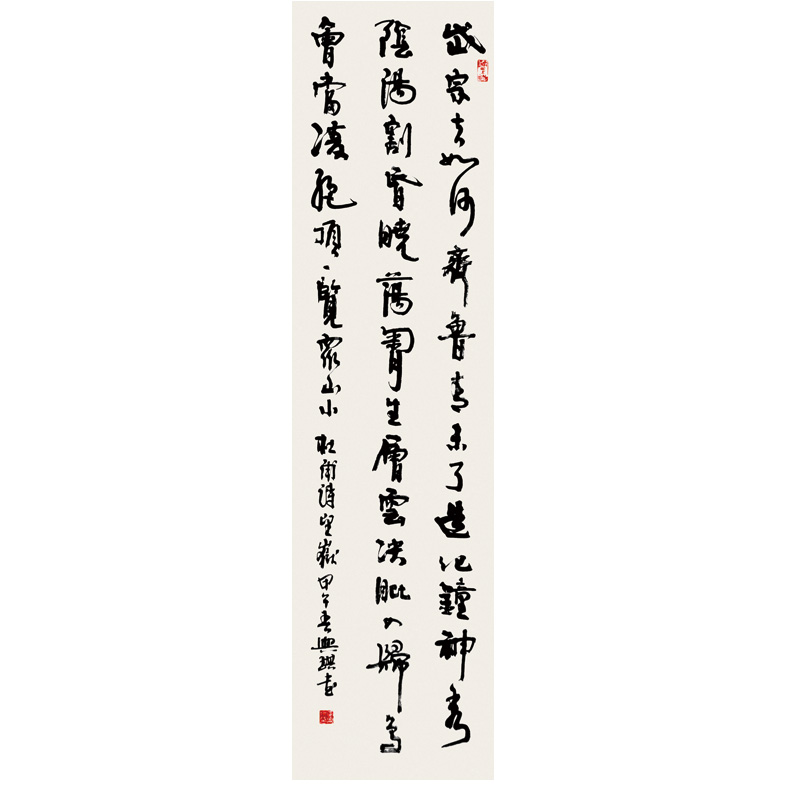 岱宗夫如何齊魯青未了造化鐘神秀
陰陽割昏曉蕩胷生層雲决眦入歸鳥
會當凌絕頂一覽眾山小 杜甫詩望嶽 甲午春興琪書